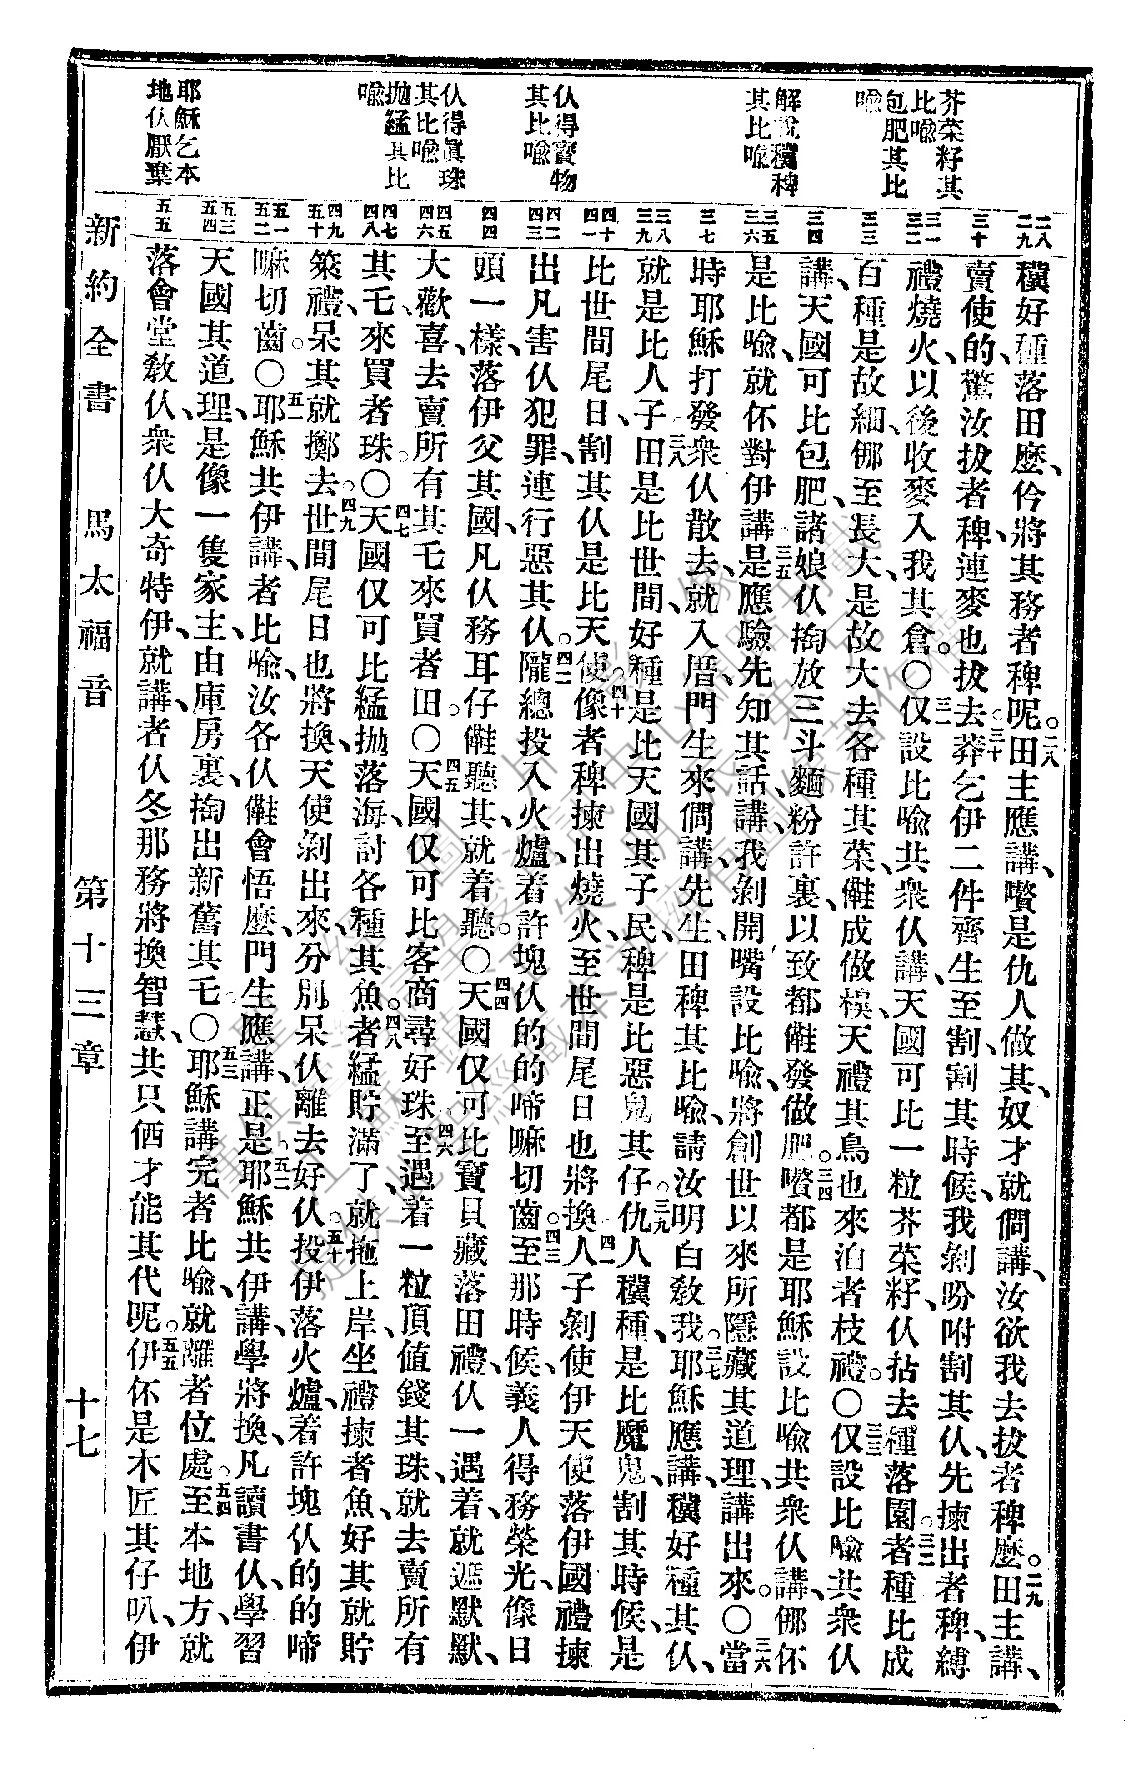 芥菜籽其
比喻
包肥其比
喻
解說穬稗
其比喻
仈得寶物
其比喻
仈得眞珠
其比喻
拋綕其比
喻
耶穌乞本
地仈厭棄
二八
二九
三十
三一
三二
三三
三四
三五
三六
三七
三八
三九
四十
四一
四二
四三
四四
四五
四六
四七
四八
四九
五十
五一
五二
五三
五四
五五
穬好種、落田麽、仱將其務者稗呢。二八田主應講、嚽是仇人做其、奴才就僴講、汝欲我去拔者稗麽。二九田主講、
賣使的、驚汝拔者稗、連麥也拔去。三十莽乞伊二件齊生至割、割其時候、我剝吩咐割其仈、先揀出者稗、縛
禮燒火、以後收麥入我其倉。○三一仅設比喻共衆仈講、天國可比一粒芥菜籽、仈拈去種落園。三二者種比成
百種是故細、㑚至長大、是故大去各種其菜、㒔成做樣、天禮其鳥、也來泊者枝禮。○三三仅設比喻共衆仈
講、天國可比包肥、諸娘仈掏放三斗麵粉許裏、以致都㒔發做肥。三四嚽都是耶穌設比喻共衆仈講、㑚伓
是比喻、就伓對伊講。三五是應驗先知其話講、我剝開嘴設比喻、將創世以來所隱藏其道理講出來。○三六當
時耶穌打發衆仈散去、就入厝、門生來僴講、先生、田稗其比喻、請汝明白敎我。三七耶穌應講、穬好種其仈、
就是比人子、三八田是比世間、好種是比天國其子民、稗是比惡鬼其仔、三九仇人穬種、是比魔鬼、割其時候、是
比世間尾日、割其仈是比天使。四十像者稗揀出燒火、至世間尾日也將換、四一人子剝使伊天使、落伊國禮揀
出凡害仈犯罪、連行惡其仈、四二隴總投入火爐、着許塊仈的的啼嘛切齒。四三至那時候、義人得務榮光、像日
頭一樣、落伊父其國、凡仈務耳仔㒔聽其、就着聽。○四四天國仅可比寶貝藏落田禮、仈一遇着、就遮默默、
大歡喜、去賣所有其乇、來買者田。○四五天國仅可比客商尋好珠、四六至遇着一粒頂値錢其珠、就去賣所有
其乇、來買者珠。○四七天國仅可比綕拋落海、討各種其魚。四八者綕貯滿了、就拖上岸、坐禮揀者魚、好其就貯
筞禮、呆其就擲去。四九世間尾日也將換、天使剝出來、分別呆仈離去好仈、五十投伊落火爐、着許塊仈的的啼
嘛切齒。○五一耶穌共伊講、者比喻、汝各仈㒔會悟麽、門生應講、正是。五二耶穌共伊講、學將換、凡讀書仈、學習
天國其道理、是像一隻家主、由庫房裏、掏出新舊其乇。○五三耶穌講完者比喻、就離者位處。五四至本地方、就
落會堂敎仈、衆仈大奇特伊、就講、者仈冬那務將換智慧、共只倠才能其代呢。五五伊伓是木匠其仔叭、伊
新約全書　馬太福音　第十三章　十七